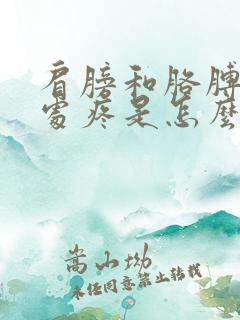 肩膀和胳膊
处疼是怎么
嵩山坳
未经同意禁止转载